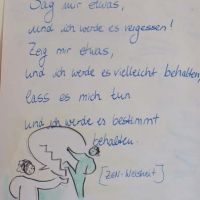 Sag mir etwas,
und ich werde es vergessen!
Zeig mir etwas,
und ich werde es vielleicht behalten,
lass es mich tun
und ich werde es bestimmt
behalten.
[ZEN-Weisheit]